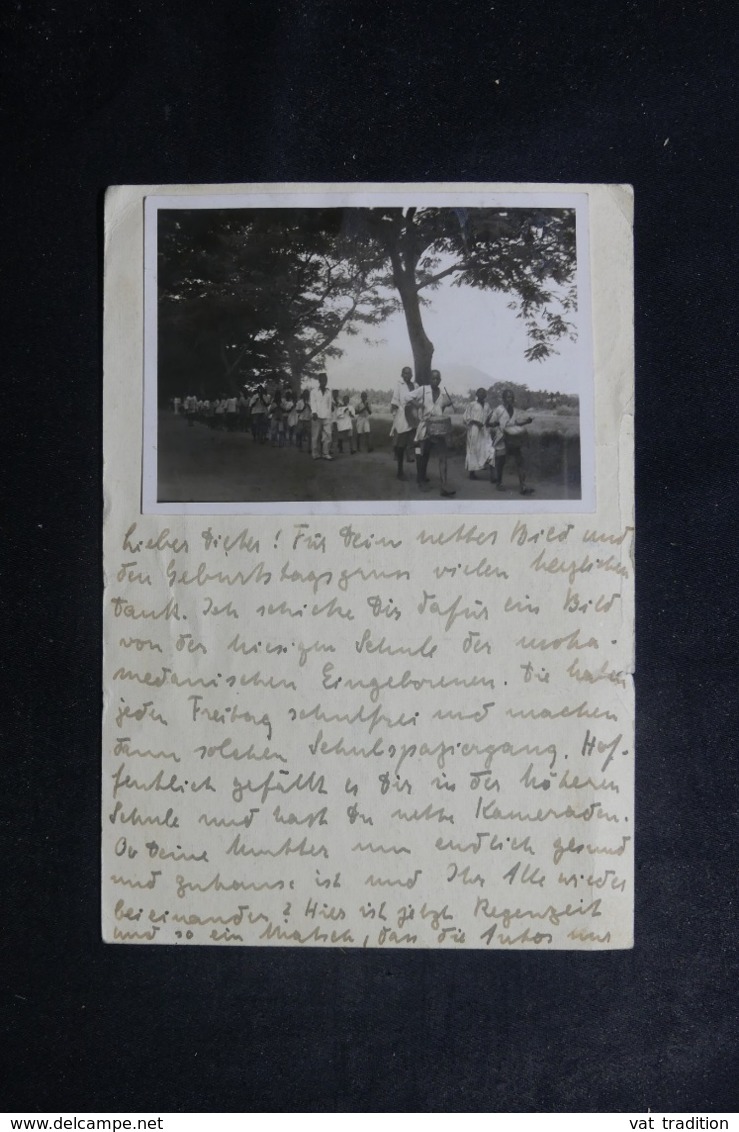 Lieber Dieter! Für Dein nettes Bild und
den Geburtstagsgruss vielen herzlichen
Dank. Ich schicke Dir dafür ein Bild
von der hiesigen Schule der moha-
medanischen Eingeborenen. Die haben
jeden Freitag schulfrei und machen
dann solchen Schulspaziergang. Hof-
fentlich gefällt es Dir in der höheren
Schule und hast Du nette Kameraden.
Ob Deine Mutter nun endlich gesund
und zuhause ist und Ihr Alle wieder
beieinander? Hier ist jetzt Regenzeit
und so ein Matsch, dass die Autos nur
delcampe.net
vat tradition